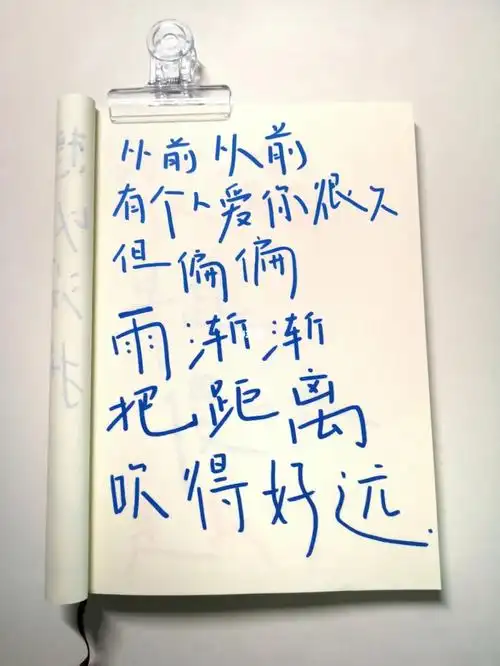 从前从前
有个人爱你很久
但偏偏
雨渐渐
把距离
吹得好远.